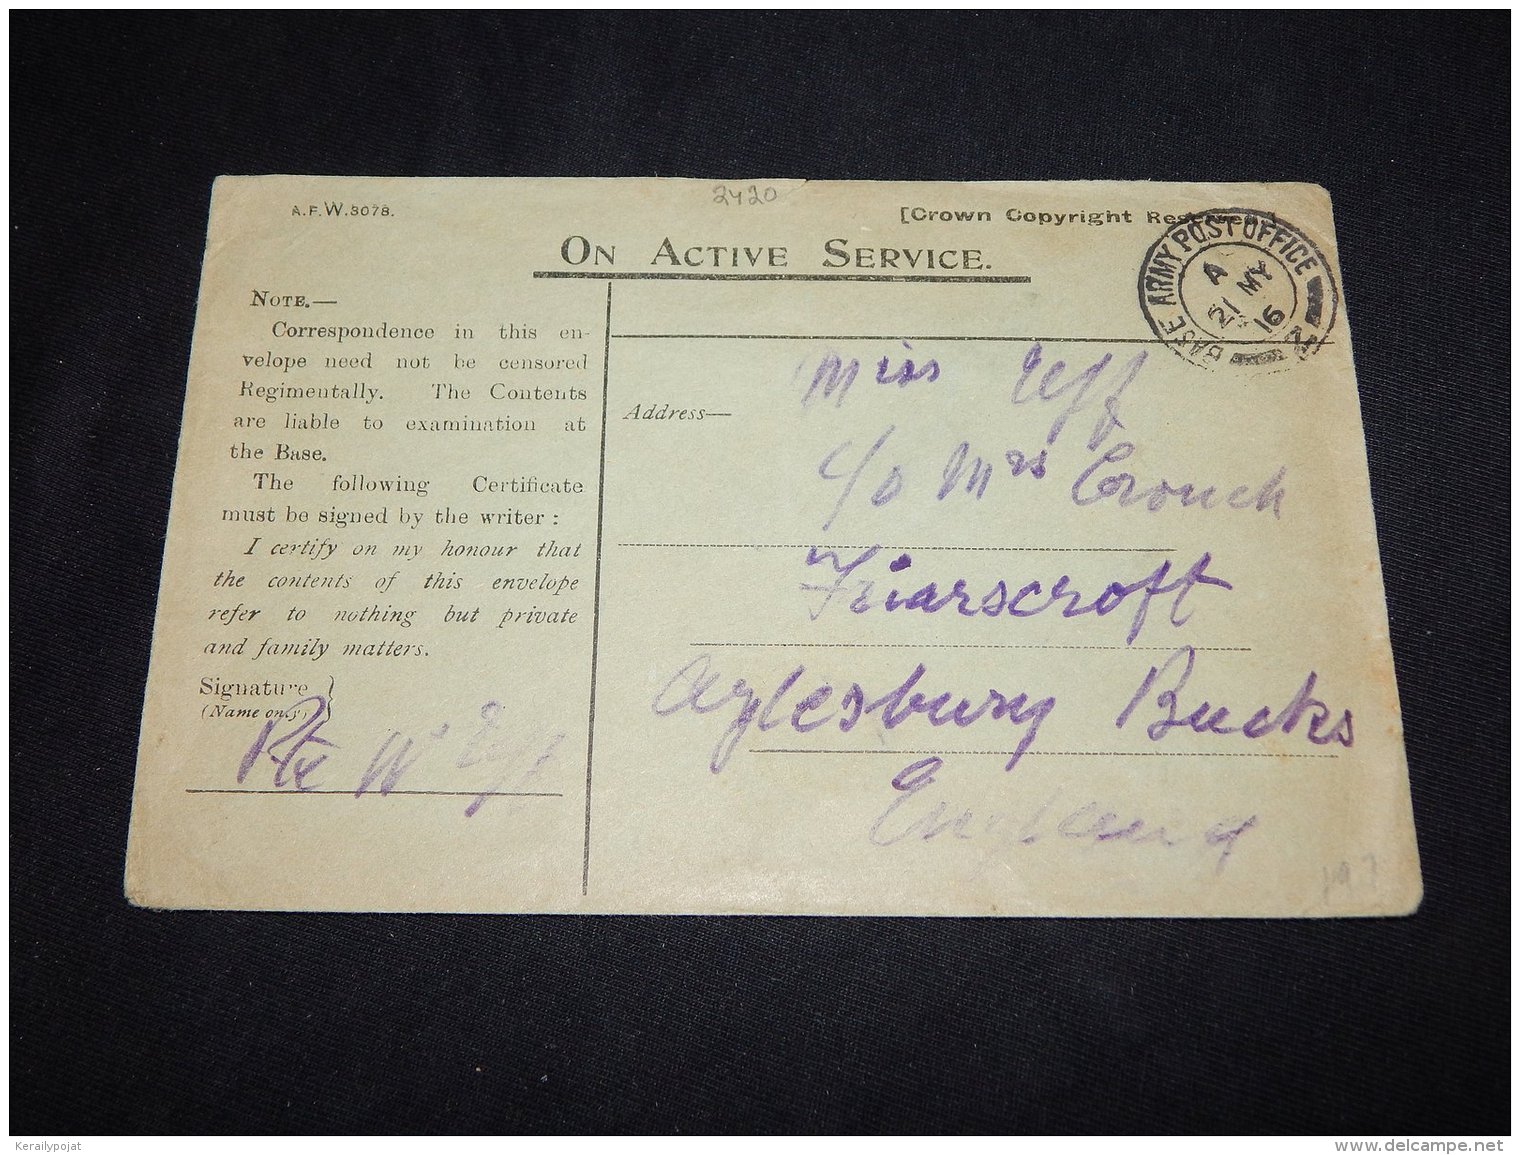 2420
A.F.W.3078.
[Crown Copyright Reserved.]
ON ACTIVE SERVICE.
BASE ARMY POST OFFICE
A
21 MY
16
NOTE.—
Correspondence in this en-
velope need not be censored
Regimentally. The Contents
are liable to examination at
the Base.
The following Certificate
must be signed by the writer :
I certify on my honour that
the contents of this envelope
refer to nothing but private
and family matters.
Signature
(Name only)
Pte W
Address—
Miss
c/o Mrs Crouch
Friarscroft
Aylesbury Bucks
England
Kerailypojat
www.delcampe.net